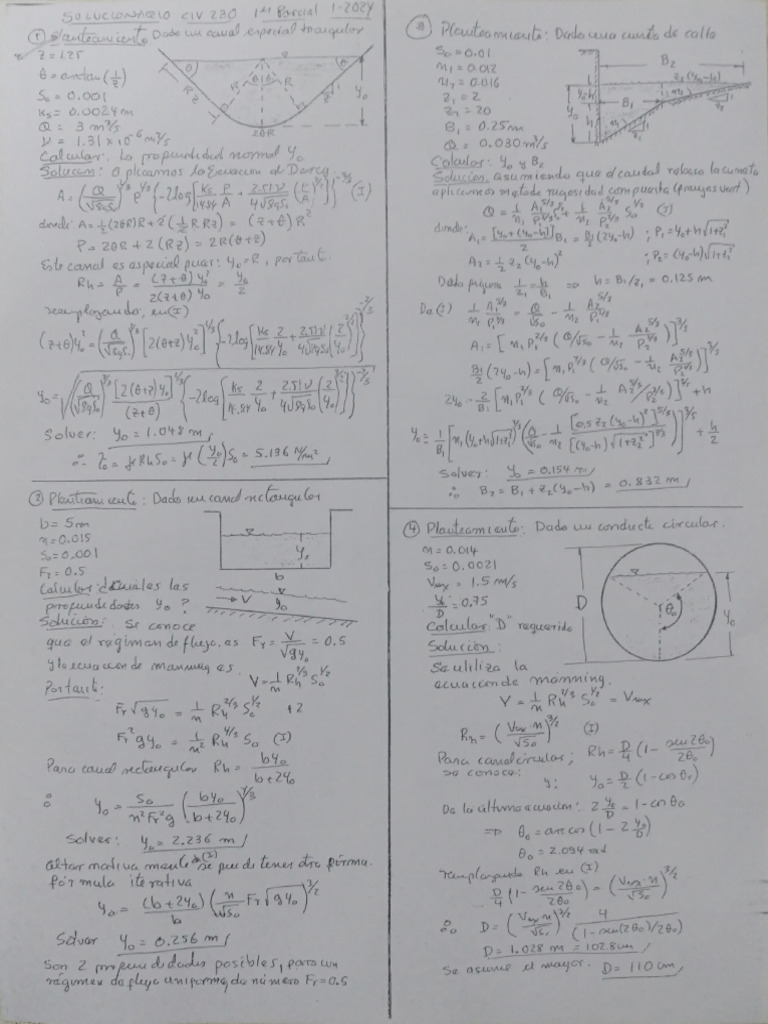 SOLUCIONARIO CIV 230 1er Parcial 1-2024
① Planteamiento: Dado un canal especial triangular
z = 1.25
θ = arctan (1/z)
S₀ = 0.001
ks = 0.0024 m
Q = 3 m³/s
ν = 1.31 × 10⁻⁶ m²/s
Calcular: La profundidad normal y₀
Solución: aplicamos la Ecuación de Darcy
A = (Q/√8gS₀)^(2/3) P^(1/3) {-2log[ks/14.84 P/A + 2.51ν/4√8gS₀ (P/A)^(3/2)]}^(-2/3) (I)
donde: A = ½(2θR)R + 2(½R RZ) = (z+θ)R²
P = 2θR + 2(RZ) = 2R(θ+z)
Este canal es especial pues: y₀ = R, por tant.
Rh = A/P = (z+θ)y₀²/2(z+θ)y₀ = y₀/2
reemplazando, en (I)
(z+θ)y₀² = (Q/√8gS₀)^(2/3) [2(θ+z)y₀]^(1/3) {-2log[ks/14.84 2/y₀ + 2.51ν/4√8gS₀ (2/y₀)^(3/2)]}^(-2/3)
y₀ = √((Q/√8gS₀)^(2/3) [2(θ+z)y₀]^(1/3)/(z+θ) {-2log[ks/14.84 2/y₀ + 2.51ν/4√8gS₀ (2/y₀)^(3/2)]}^(-2/3))
Solver: y₀ = 1.048 m
∴ τ₀ = γRhS₀ = γ(y₀/2)S₀ = 5.136 N/m²
θ θ R R RZ 2θR y₀
② Planteamiento: Dado una cuneta de calle
S₀ = 0.01
n₁ = 0.012
n₂ = 0.016
z₁ = 2
z₂ = 20
B₁ = 0.25m
Q = 0.030 m³/s
B₂ z₂(y₀-h) B₁ y₀-h y₀ h
Calcular: y₀ y B₂
Solución: asumiendo que el caudal rebasa la cuneta
aplicamos metodo rugosidad compuesta (franjas vert)
Q = 1/n₁ A₁^(5/3)/P₁^(2/3) S₀^(1/2) + 1/n₂ A₂^(5/3)/P₂^(2/3) S₀^(1/2) (I)
donde: A₁ = [y₀+(y₀-h)]/2 B₁ = B₁/2 (2y₀-h) ; P₁ = y₀+h√1+z₁²
A₂ = ½ z₂(y₀-h)² ; P₂ = (y₀-h)√1+z₂²
Dada figura 1/z₁ = h/B₁ ⇒ h = B₁/z₁ = 0.125 m
De (I) 1/n₁ A₁^(5/3)/P₁^(2/3) = Q/√S₀ - 1/n₂ A₂^(5/3)/P₂^(2/3)
A₁ = [n₁P₁^(2/3) (Q/√S₀ - 1/n₂ A₂^(5/3)/P₂^(2/3))]^(3/5)
B₁/2 (2y₀-h) = [n₁P₁^(2/3) (Q/√S₀ - 1/n₂ A₂^(5/3)/P₂^(2/3))]^(3/5)
2y₀ = 2/B₁ [n₁P₁^(2/3) (Q/√S₀ - 1/n₂ A₂^(5/3)/P₂^(2/3))]^(3/5) + h
y₀ = 1/B₁ [n₁(y₀+h√1+z₁²)^(2/3) (Q/√S₀ - 1/n₂ [0.5z₂(y₀-h)²]^(5/3)/[(y₀-h)√1+z₂²]^(2/3))]^(3/5) + h/2
Solver: y₀ = 0.154 m
∴ B₂ = B₁ + z₂(y₀-h) = 0.832 m
③ Planteamiento: Dado un canal rectangular
b = 5m
n = 0.015
S₀ = 0.001
Fr = 0.5
y₀ b V y₀
Calcular: ¿Cuales las
profundidades y₀?
Solución: Se conoce
que el régimen de flujo, es Fr = V/√gy₀ = 0.5
y la ecuacion de manning es V = 1/n Rh^(2/3) S₀^(1/2)
Por tanto:
Fr√gy₀ = 1/n Rh^(2/3) S₀^(1/2) ↑2
Fr²gy₀ = 1/n² Rh^(4/3) S₀ (I)
Para canal rectangular Rh = by₀/b+2y₀
∴ y₀ = S₀/n²Fr²g (by₀/b+2y₀)^(4/3)
Solver: y₀ = 2.236 m
Alternativamente de (I) se puede tener otra fórma.
fórmula iterativa
y₀ = (b+2y₀)/b (n/√S₀ Fr√gy₀)^(3/2)
Solver y₀ = 0.256 m
Son 2 profundidades posibles, para un
régimen de flujo uniforme, de número Fr=0.5
④ Planteamiento: Dado un conducto circular.
n = 0.014
S₀ = 0.0021
Vmax = 1.5 m/s
y₀/D = 0.75
Calcular "D" requerido
D θ₀ y₀
Solución:
Se utiliza la
ecuación de manning.
V = 1/n Rh^(2/3) S₀^(1/2) = Vmax
Rh = (Vmax·n/√S₀)^(3/2) (I)
Para canal circular, Rh = D/4 (1 - sen2θ₀/2θ₀)
se conoce: y: y₀ = D/2 (1-cosθ₀)
De la última ecuación: 2 y₀/D = 1-cosθ₀
⇒ θ₀ = arccos(1-2 y₀/D)
θ₀ = 2.094 rad
reemplazando Rh en (I)
D/4 (1 - sen2θ₀/2θ₀) = (Vmax·n/√S₀)^(3/2)
∴ D = (Vmax·n/√S₀)^(3/2) 4/(1-sen(2θ₀)/2θ₀)
D = 1.028 m = 102.8cm
Se asume el mayor. D = 110 cm